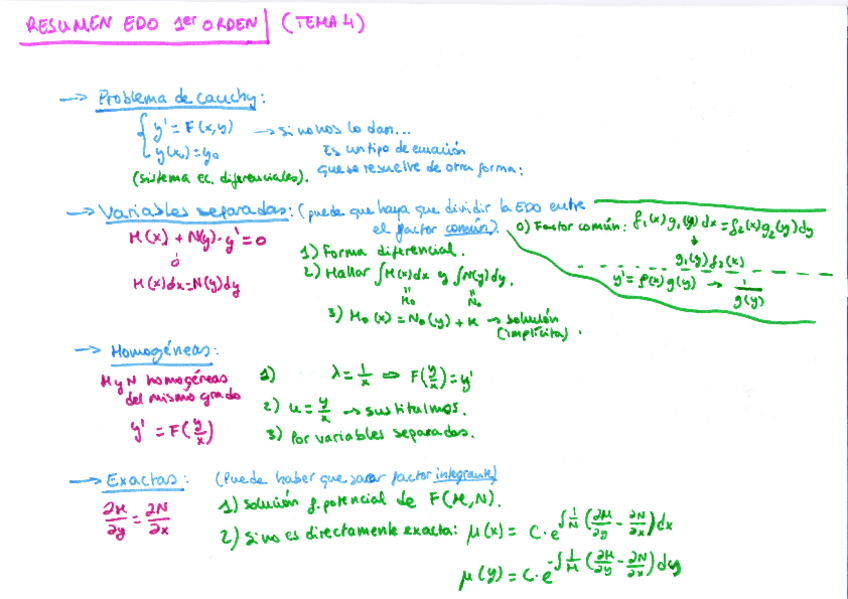 RESUMEN EDO 1er ORDEN (TEMA 4)
→ Problema de cauchy:
{ y' = F(x,y) → si no nos lo dan...
y(x₀)=y₀ Es un tipo de ecuación
(sistema ec. diferenciales). que se resuelve de otra forma:
→ Variables separadas: (puede que haya que dividir la EDO entre
el factor común).
M(x) + N(y)·y' = 0
ó
M(x)dx=N(y)dy
1) Forma diferencial.
2) Hallar ∫M(x)dx y ∫N(y)dy.
= =
M₀ N₀
3) M₀(x) = N₀(y) + K → solución
(implícita).
0) Factor común: f₁(x)g₁(y)dx = f₂(x)g₂(y)dy
↓
g₁(y)f₂(x)
y' = f(x)g(y) → 1/g(y)
→ Homogéneas:
M y N homogéneas
del mismo grado
y' = F(y/x)
1) λ = 1/x ⇒ F(y/x) = y'
2) u = y/x → sustituimos.
3) Por variables separadas.
→ Exactas: (Puede haber que sacar factor integrante)
∂M/∂y = ∂N/∂x
1) solución f. potencial de F(M,N).
2) Si no es directamente exacta: μ(x) = C·e^∫1/N (∂M/∂y - ∂N/∂x)dx
μ(y) = C·e^-∫1/M (∂M/∂y - ∂N/∂x)dy